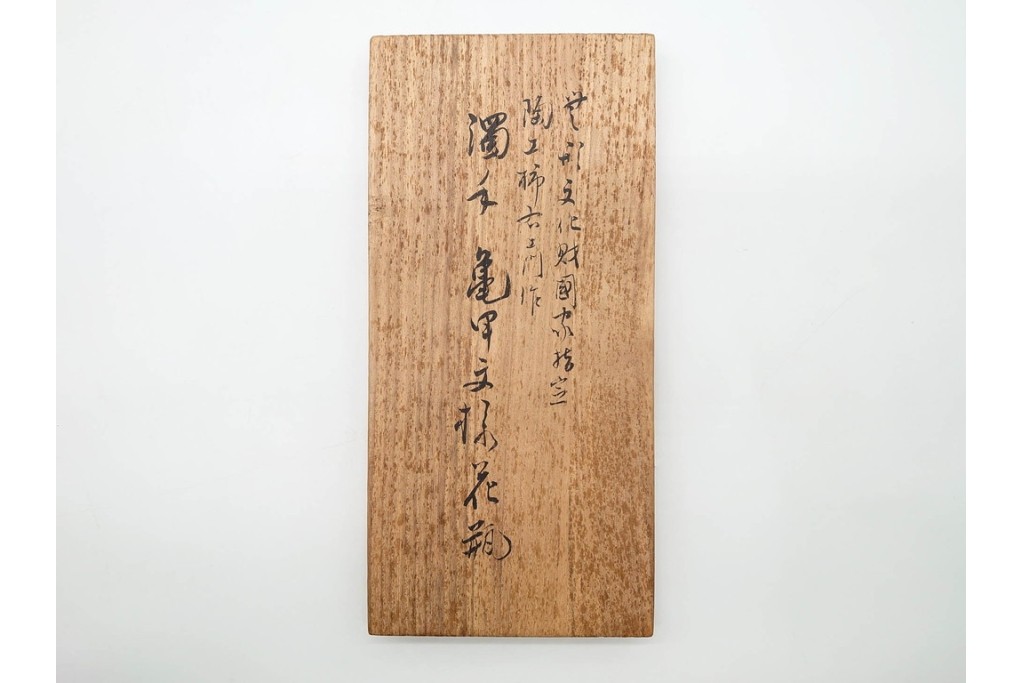 無形文化財國家指定
陶工柿右エ門作
濁手 亀甲文様花瓶